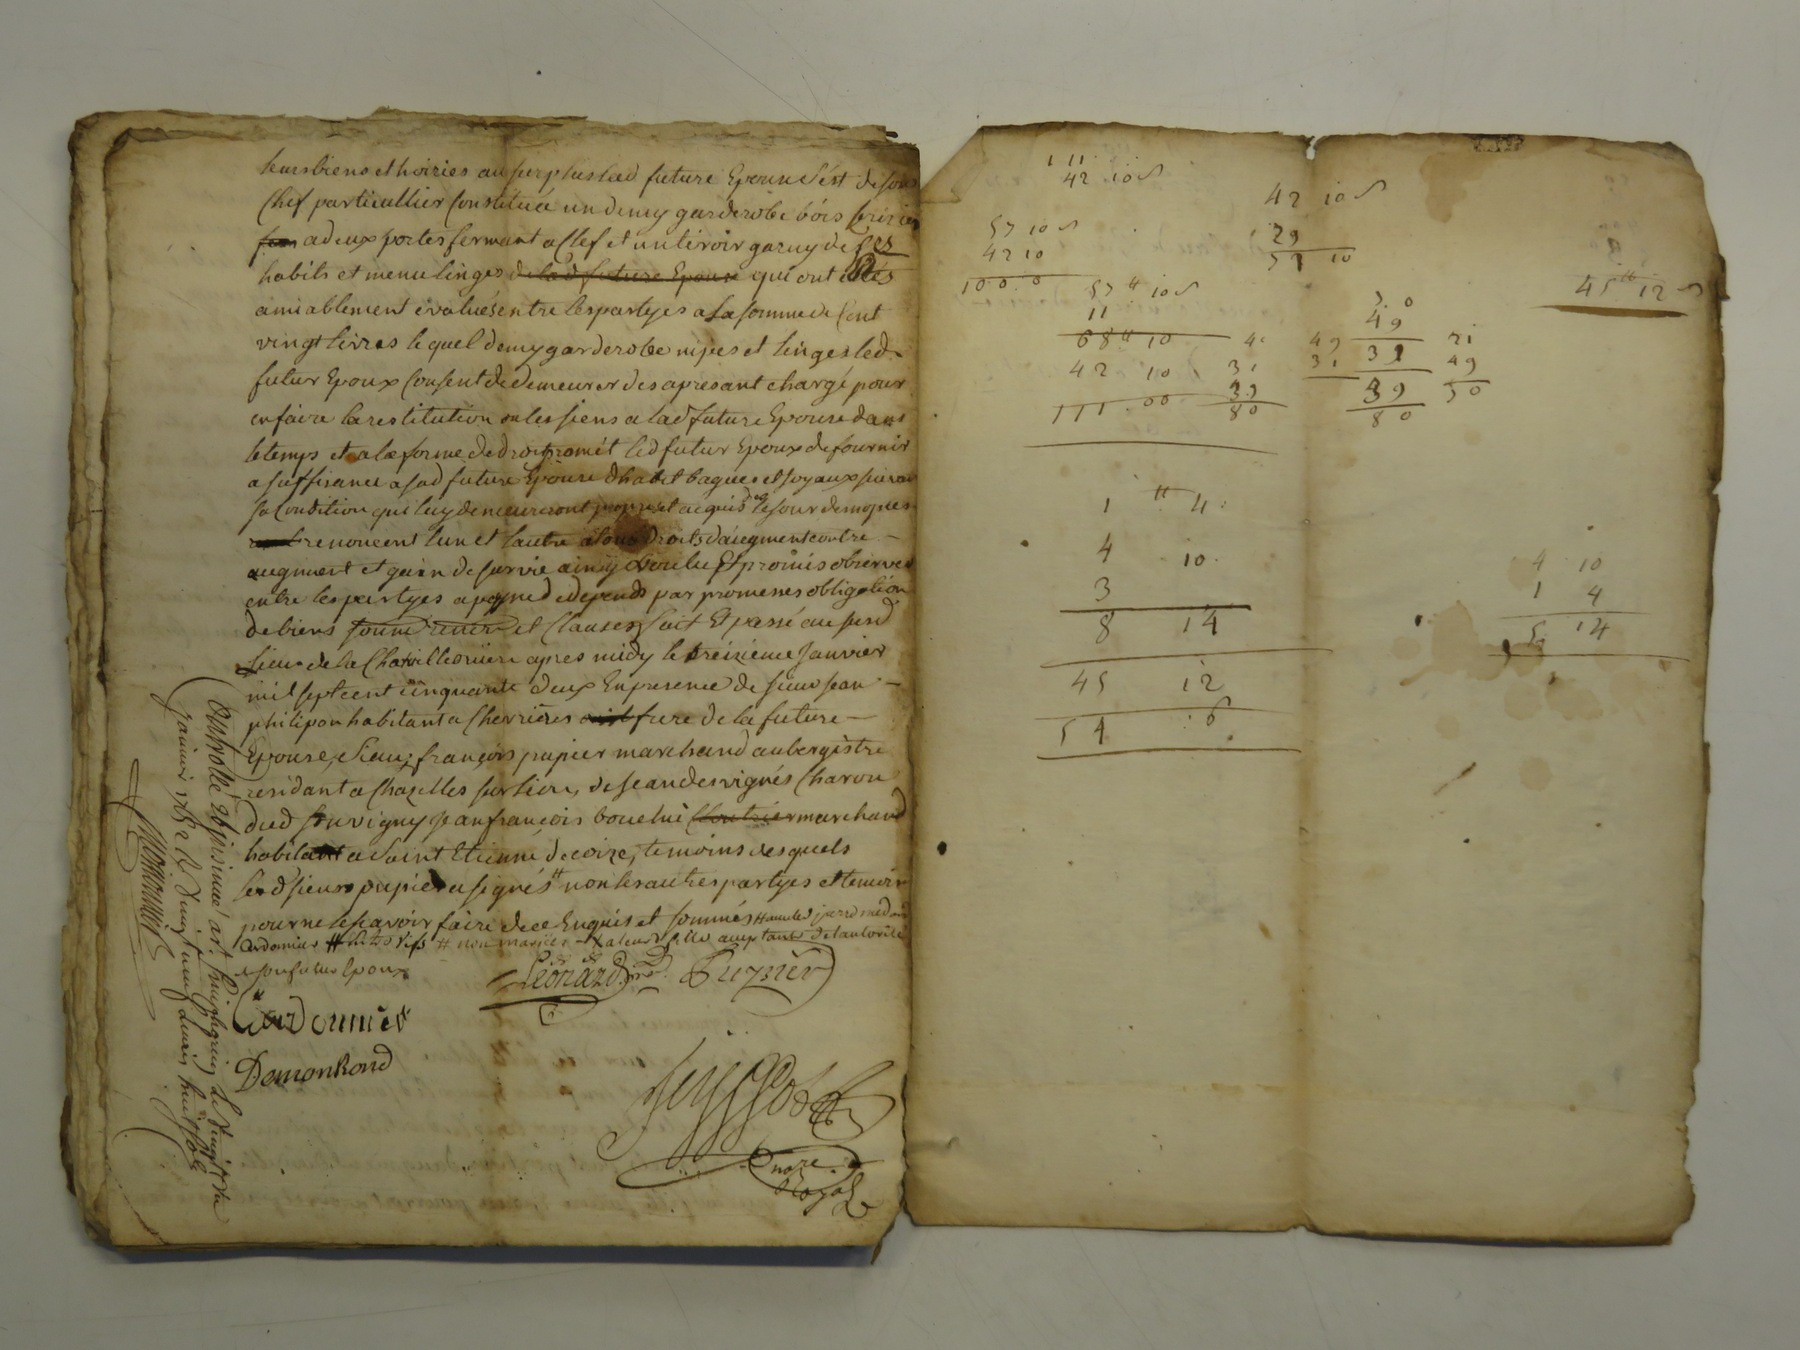 leurs biens et hoiries au surplus lad future Epouse s'est de son
Chef particullier Constituée un demy garderobe bois serizier
a deux portes fermant a Clef et un tiroir garny de ses
habits et menu linges de lad future Epouse qui ont étés
amiablement évalués entre les partyes a la somme de Cent
vingt livres le quel demy garderobe nipes et linges led
futur Epoux Consent de demeurer des apresant chargé pour
en faire la restitution ou les siens a lad future Epouse dans
le temps et a la forme de droit promét led futur Epoux de fournir
a suffisance a sad future Epouse d'habit bagues et joyaux suivant
sa Condition qui luy demeureront propres et acquis des le jour de nopces
renoncent lun et lautre a tous droits d'augment contre
augment et gain de survie ainsy voulu Et promis observer
entre les partyes a peyne de depends par promesses obligation
de biens soumis renon et Clauses, fait Et passé au susd
Lieu de la Chavillionniere apres midy le treizieme Janvier
mil sept cent cinquante deux En presence de sieur jean
philipon habitant a Chevrières frere de la future
Epouse, sieur françois papier marchand aubergistre
résidant a Chazelles sur lion, de jean desvignés Charon
dud Souvigny jean françois bouchu Cloutrier marchand
habitant a Saint Etienne de coize, temoins desquels
led sieur papier a signés non les autres partyes et temoin
pour ne le scavoir faire de ce Enquis et sommés
de son futur Epoux
Leonard Puznier
Cardonnier
Demonrond
no.re
Royal
1 11
42 10 s
42 10 s
57 10 s
42 10
100 0 0
29
57 10
45 ₶ 12 s
57 ₶ 10 s
11
68 ₶ 10
42 10
111 00
31
39
80
49
31
49
39
39
80
21
49
50
1 ₶ 4
4 10
3
8 14
45 12
54 6
4 10
1 4
5 14